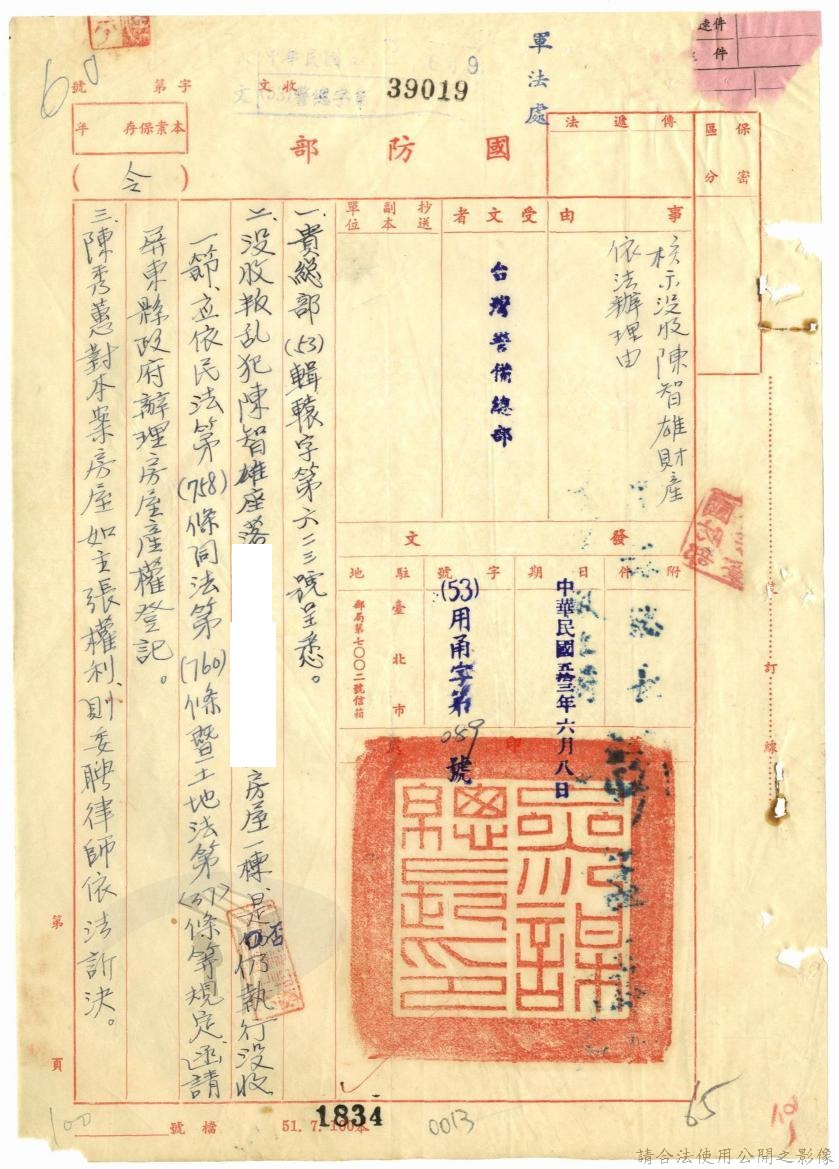 軍法處
39019
收文
字第 號
本案保存 年
國防部
(令)
保密區分
傳遞法
速件
件
事由
核示沒收陳智雄財產
依法辦理由
受文者
台灣警備總部
抄送副本單位
發文
附件
日期
中華民國五十三年六月八日
字號
(53)用甬字第089號
駐地
臺北市
郵局第七〇〇二號信箱
印
參謀總長印
一、貴總部(53)輯轅字第六二三號呈悉。
二、没收叛乱犯陳智雄座落 房屋一棟、是否仍執行没收
一節、应依民法第(758)條同法第(760)條暨土地法第(37)條等規定、函請
屏東縣政府辦理房屋産權登記。
三、陳秀蕙對本案房屋如主張權利、則委聘律師依法訴決。
裝訂線
第 頁
檔號
51. 7. 100本
1834
0013
65
60
100
請合法使用公開之影像